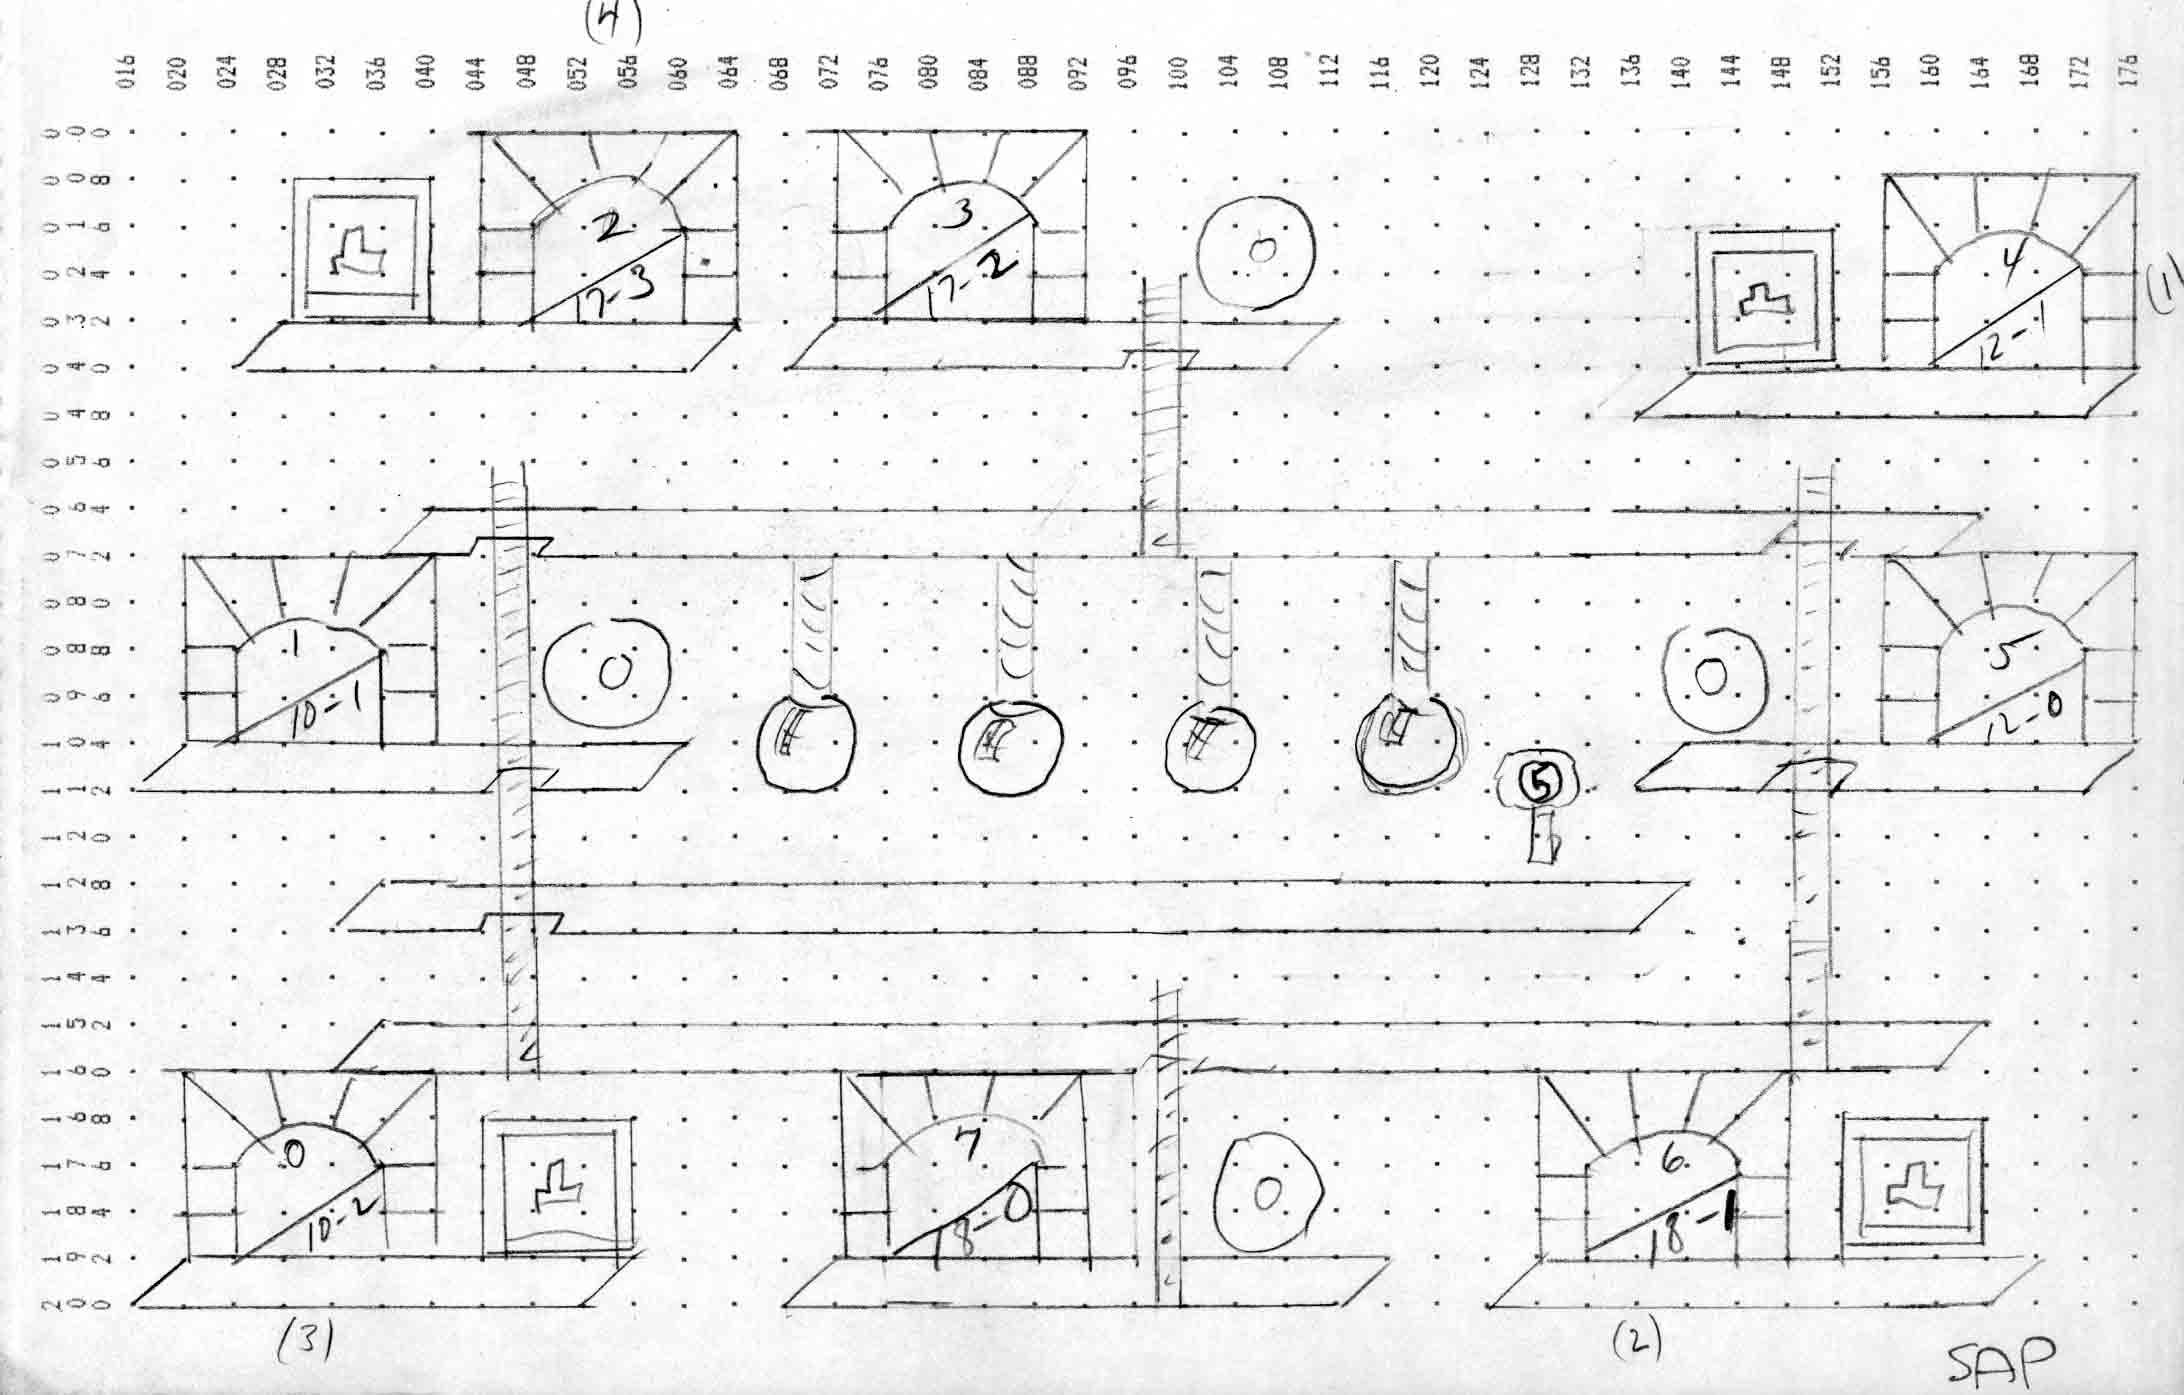 (4)
016 020 024 028 032 036 040 044 048 052 056 060 064 068 072 076 080 084 088 092 096 100 104 108 112 116 120 124 128 132 136 140 144 148 152 156 160 164 168 172 176
000
008
016
024
032
040
048
056
064
072
080
088
096
104
112
120
128
136
144
152
160
168
176
184
192
200
2
17-3
3
17-2
4
12-1
(1)
1
10-1
5
12-0
5
0
10-2
7
18-0
6
18-1
(3)
(2)
SAP